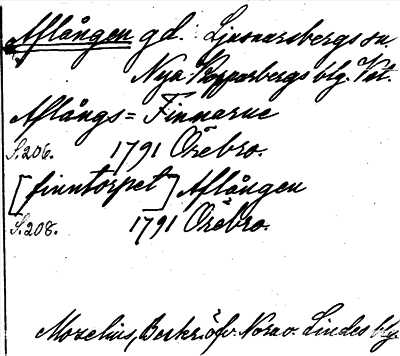 Aflången gd. Ljusnarsbergs sn.
Nya Kopparbergs blg. Vstm.
Aflångs=Finnarne
S. 206. 1791 Örebro.
[finntorpet] Aflången
S. 208. 1791 Örebro.
Mozelius, Beskr. öfv. Nora o. Lindes blg.